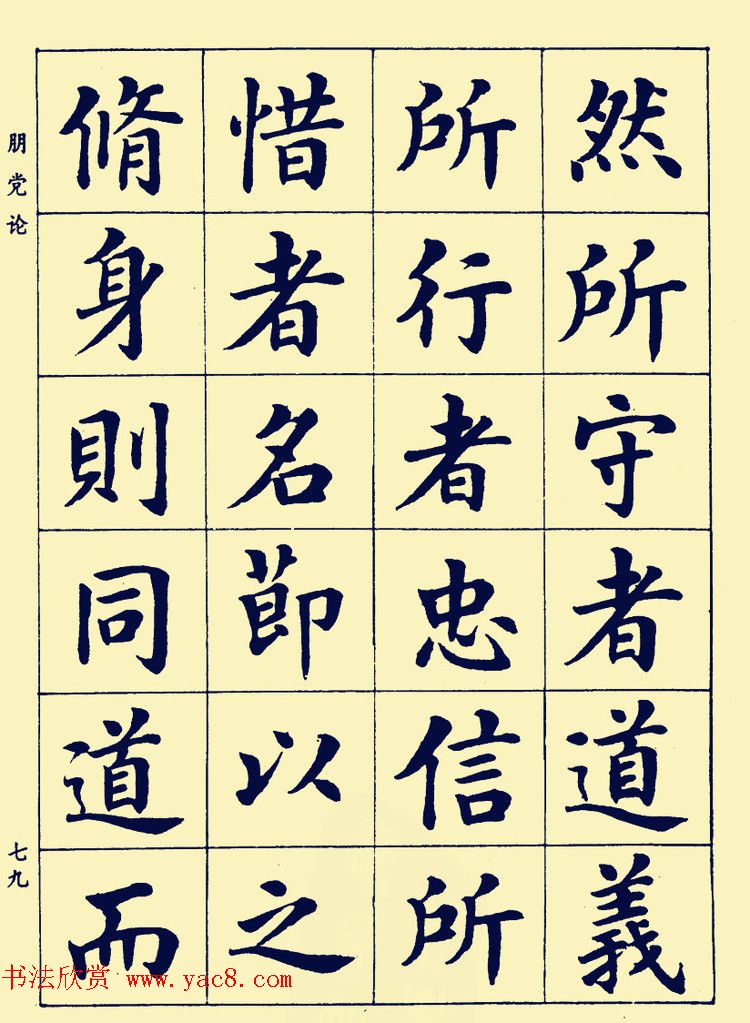 然所守者道義
所行者忠信所
惜者名節以之
脩身則同道而
朋党论
七九
书法欣赏 www.yac8.com